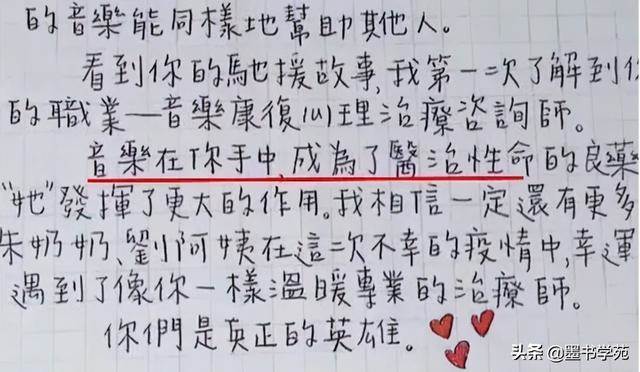 的音樂能同樣地幫助其他人。
看到你的馳援故事,我第一次了解到你
的職業—音樂康復心理治療咨詢師。
音樂在你手中,成為了醫治性命的良藥
“她”發揮了更大的作用。我相信一定還有更多
朱奶奶、劉阿姨在這次不幸的疫情中,幸運
遇到了像你一樣溫暖專業的治療師。
你們是真正的英雄。
头条 @墨书学苑